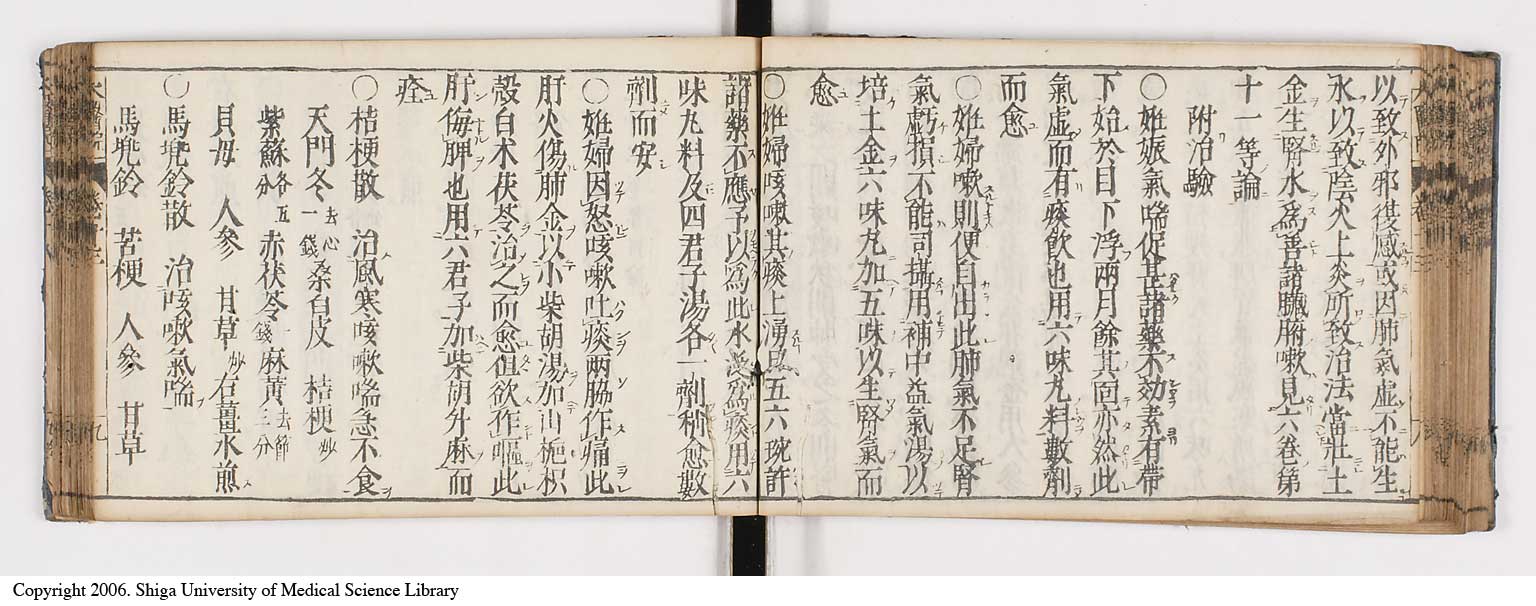 以致外邪復感或因肺氣虚不能生
水以致陰火上炎所致治法當壯土
金生腎水爲善諸臟腑嗽見六卷第
十一等論
附治驗
○姙娠氣喘促甚諸藥不効素有帶
下始於目下浮兩月餘其面亦然此
氣虚而有痰飲也用六味丸料數劑
而愈
○姙婦嗽則便自出此肺氣不足腎
氣虧損不能司攝用補中益氣湯以
培土金六味丸加五味以生腎氣而
愈
○姙婦咳嗽其痰上湧日五六碗許
諸藥不應予以爲此水泛爲痰用六
味丸料及四君子湯各一劑稍愈數
劑而安
○姙婦因怒咳嗽吐痰兩脇作痛此
肝火傷肺金以小柴胡湯加山梔枳
殼白朮茯苓治之而愈但欲作嘔此
肝侮脾也用六君子加柴胡升麻而
痊
○桔梗散 治風寒咳嗽喘急不食
天門冬去心一錢 桑白皮 桔梗炒
紫蘇各五分 赤茯苓一錢 麻黄去節三分
貝母 人參 甘草炒 右薑水煎
○馬兜鈴散 治咳嗽氣喘
馬兜鈴 苦梗 人參 甘草
Copyright 2006. Shiga University of Medical Science Library